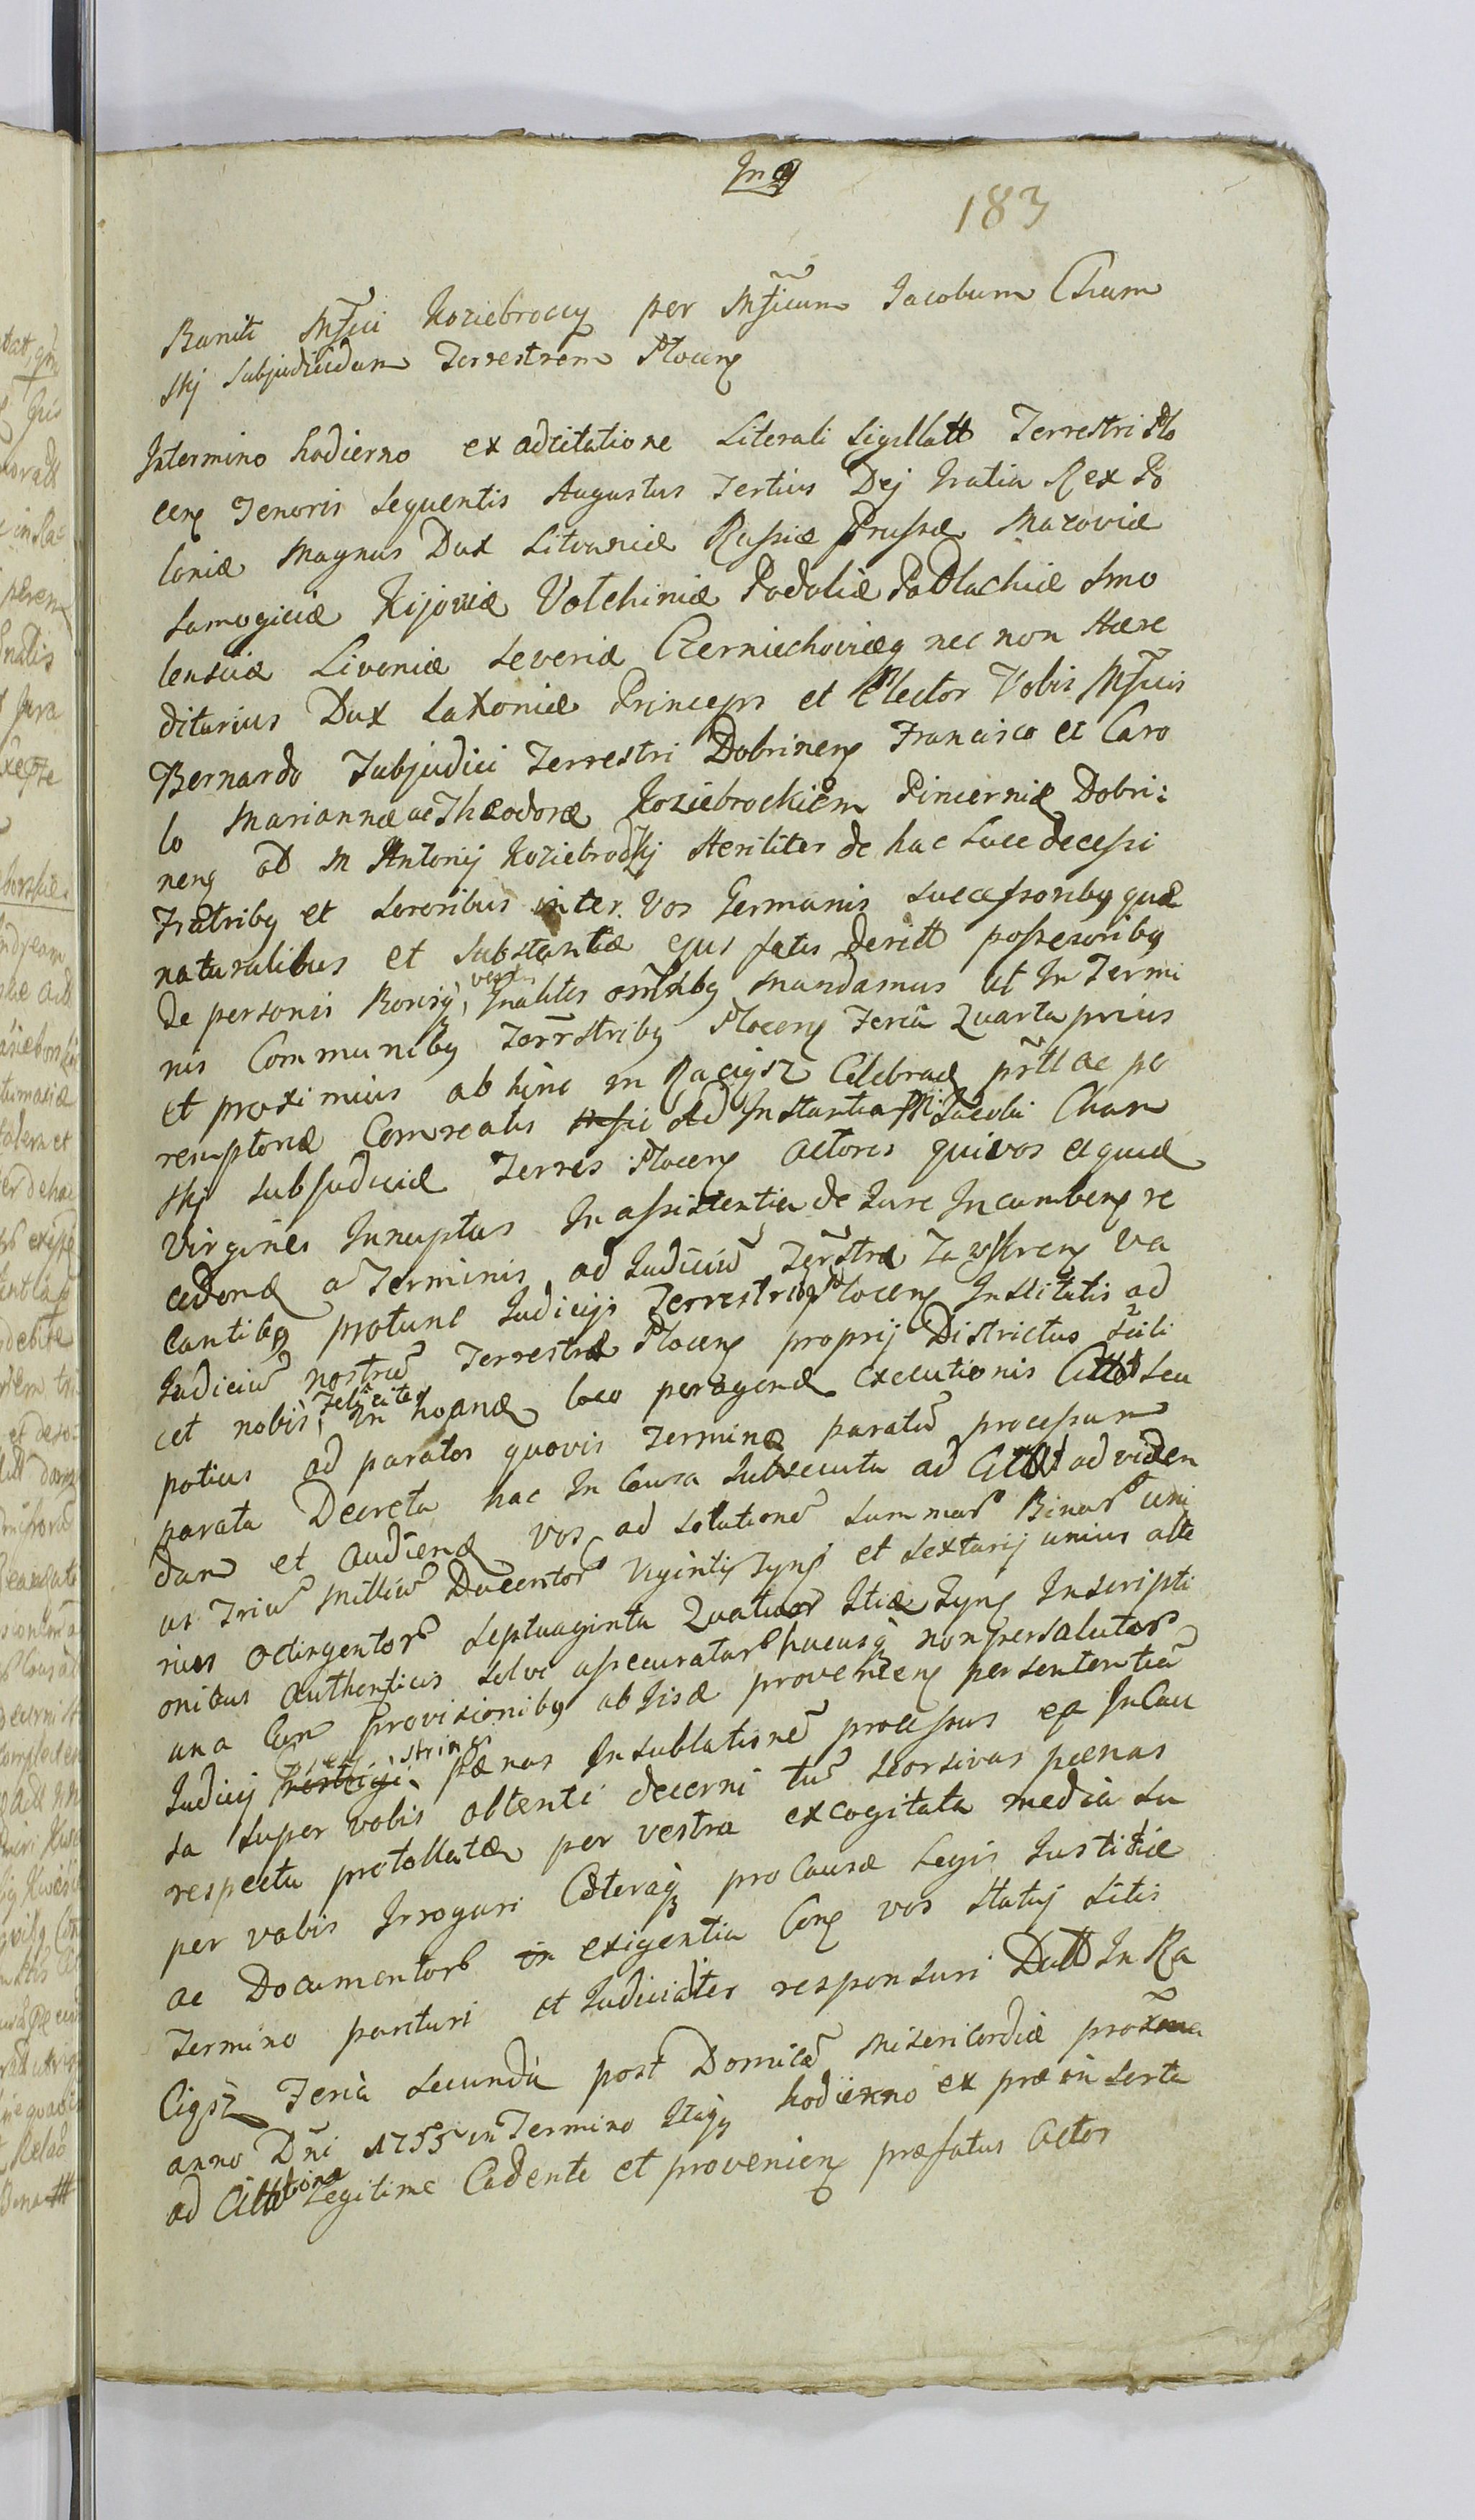 183
Baniti Mfici Koziebroccy per Mficum Jacobum Cham
skj Subjudicem Terrestrem Plocen
In termino hodierno ex adcitatione Literali Sigillatt Terrestri Plo
cen Tenoris Sequentis Augustus Tertius Dej Gratia Rex Po
loniæ Magnus Dux Litvaniæ Russiæ Prussiæ Mazoviæ
Samogiciæ Kijoviæ Volchiniæ Podoliæ Podlachiæ Smo
lensciæ Livoniæ Severiæ Czerniechoviæq nec non Hære
ditarius Dux Saxoniæ Princeps et Elector Vobis Mficis
Bernardo Subjudici Terrestri Dobrinen Francisco et Caro
lo Mariannæ ac Theodoræ Koziebrockiem Pincerniæ Dobri:
nen ad M Antonij Koziebrodzkj Steriliter de hac Luce decessi
Fratribq et Sororibus inter Vos Germanis Successoribq quæ
naturalibus et Substantiæ ejus fatis derett possesoribq
de personis Bonisq vestris gnaliter omnibq mandamus ut In Termi
nis Communibq Terrstribq Plocen Feria Quarta prius
et proximius ab hinc in Raciąż Celebrand prtt ac pe
remptoriæ Compeatis ad Instantia M Jacobi Cham
skj Subjudicis Terres Plocen Actoris qui vos et quid
Virgines Innuptas In assistentia de Jure Incumben re
cedend a Terminis ad Judiciu Terstræ Zawskren va
cantibq protunc Judicijs Terrestribq Plocen Institutis ad
Judiciu nostru Terrestræ Plocen proprij Districtus scili
cet nobis Feliciter In hoand loco peragend executionis Citatt seu
potius ad paratos quovis Termino paratu processum
parata Decreta hac In Causa Subsecuta ad Citatt ad viden
dam et Audiend vos ad Solutione Summar Binar uni
us Triu Milliu Ducentor Viginti Tynf et Sextarij unius alte
rius Octingentor Septuaginta Quatuor Itide Tynf Inscripti
onibus Authenticis Salvi assecuratar hucusq non persolutar
una Cum provisionibq ab Iisd provenien per sententia
Judicij nostri astringi pænas In sublatione processus ex In Cau
sa Super vobis obtenti decerni tu Seorsivas pænas
respectu protellatæ per vestra excogitata media Su
per vobis Irrogari Cæteraq pro Causæ Legis Justitiæ
ac Documentor exigentia Cern vos Statuj Sitis
Termino parituri et Judicialiter responsuri Datt In Ra
Ciąż Feria Secunda post Domica Misericordiæ proxima
anno Dni 1755 in Termino Itaq hodierno ex præinserta
ad Citatione Legitime Cadente et provenien præfatus Actor